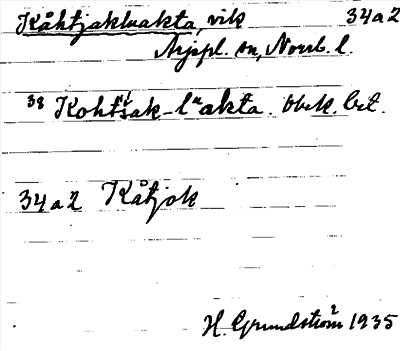 Kåhtjakluakta, vik 34a2
Arjepl. sn, Norrb. l.
38 Kohtšak-luakta. Obek. bet.
34a2 Kåtjok
H. Grundström 1935